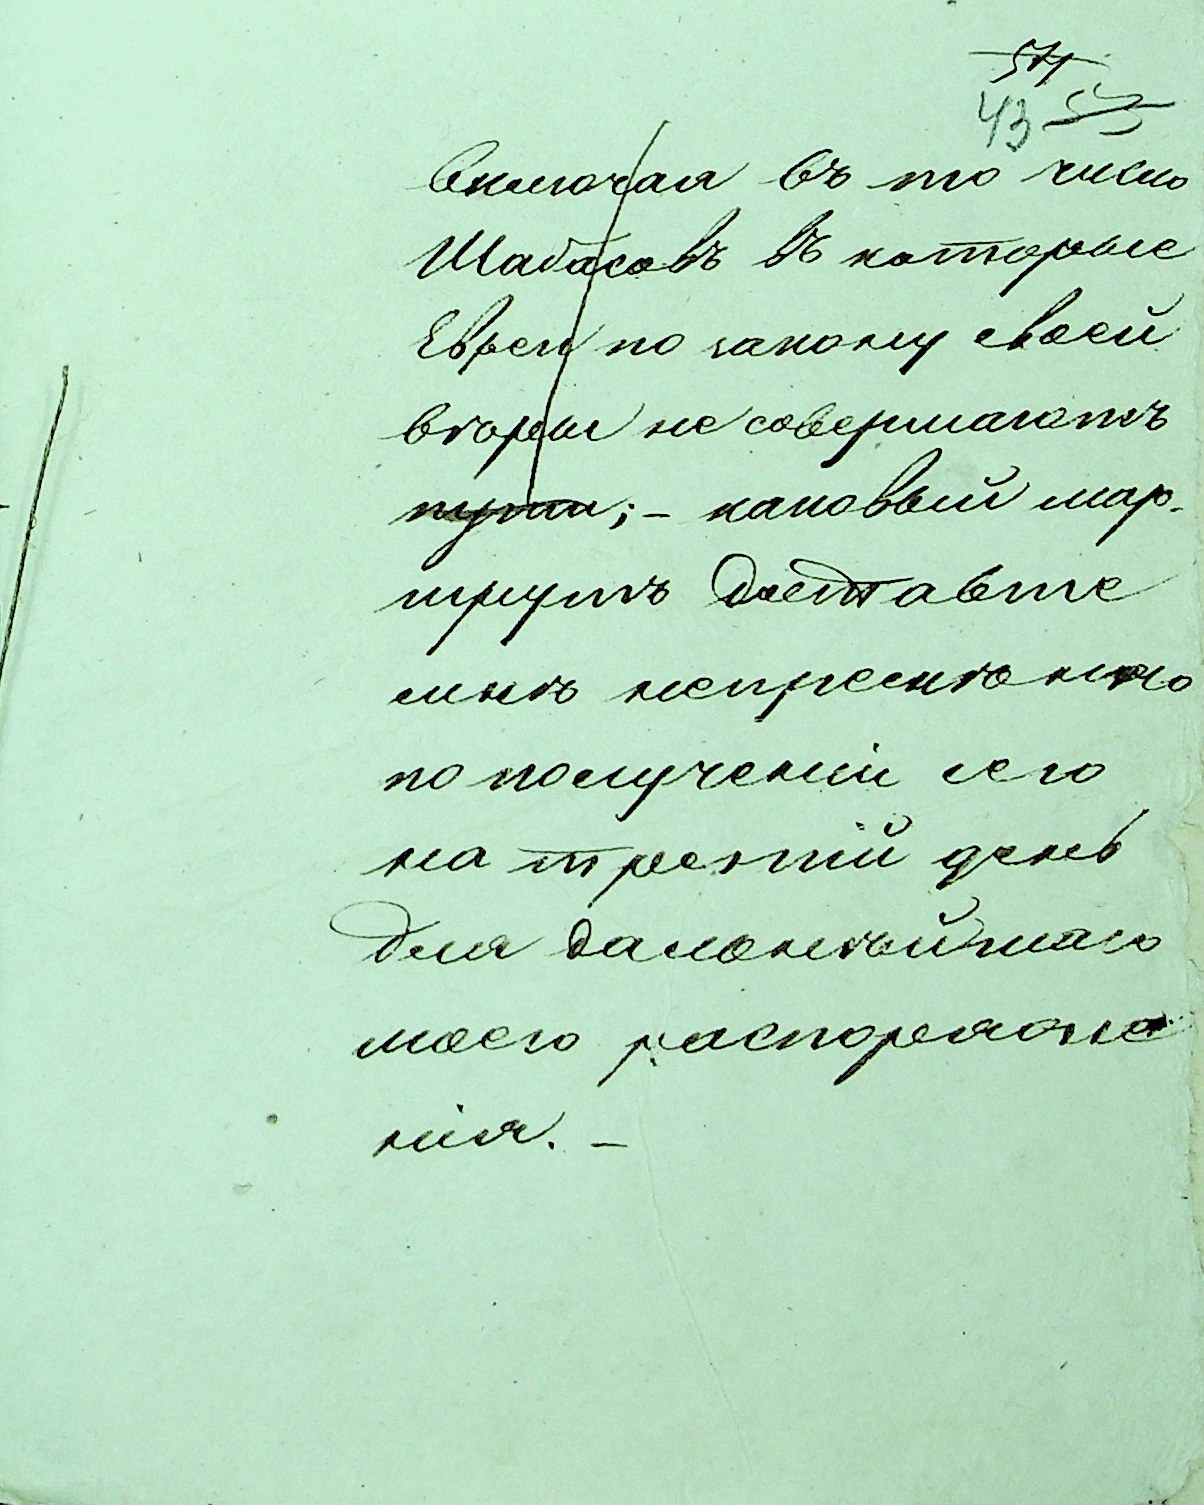 43
включая въ то число
Шабасовъ въ которые
Евреи по закону своей
вѣры не совершаютъ
пути; – каковый мар-
шрутъ доставте
мнѣ непремѣнно
по полученіи сего
на третій день
для далнѣйшаго
моего распоряже
нія. –